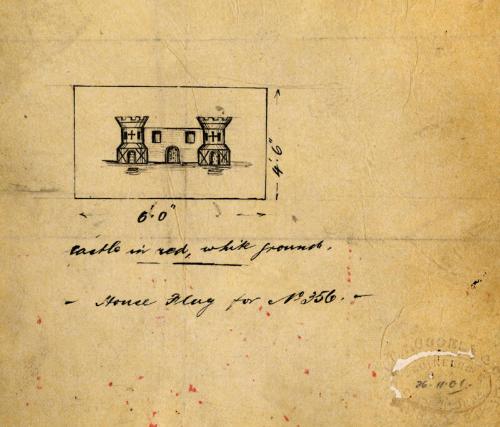 4'.6"
6'.0"
Castle in red, white ground.
- House Flag for No 356. -
26.11.01.